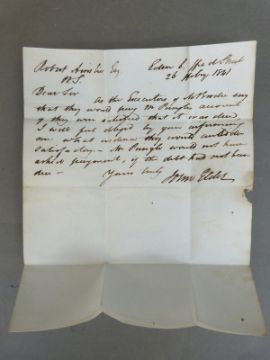 Robert Ainslie Esq
W.S.
26 May 1841
Dear Sir
As the Executors of Mr say
that they would pay Mr Pringle's account
if they were satisfied that it was due
I will feel obliged by your informing
me what evidence they would consider
satisfactory - Mr Pringle would not have
asked payment, if the debt had not been
due -
Yours truly
John Elder